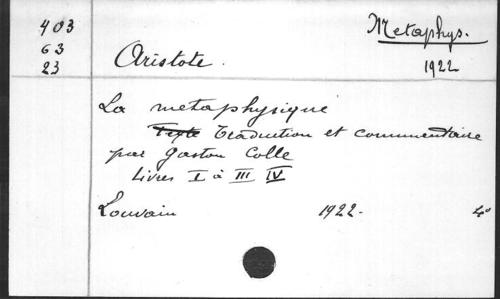 403
63
23
Metaphys.
1922
Aristote.
La metaphysique
Texte Traduction et commentaire
par Gaston Colle
Livres I à III IV
Louvain 1922. 4°